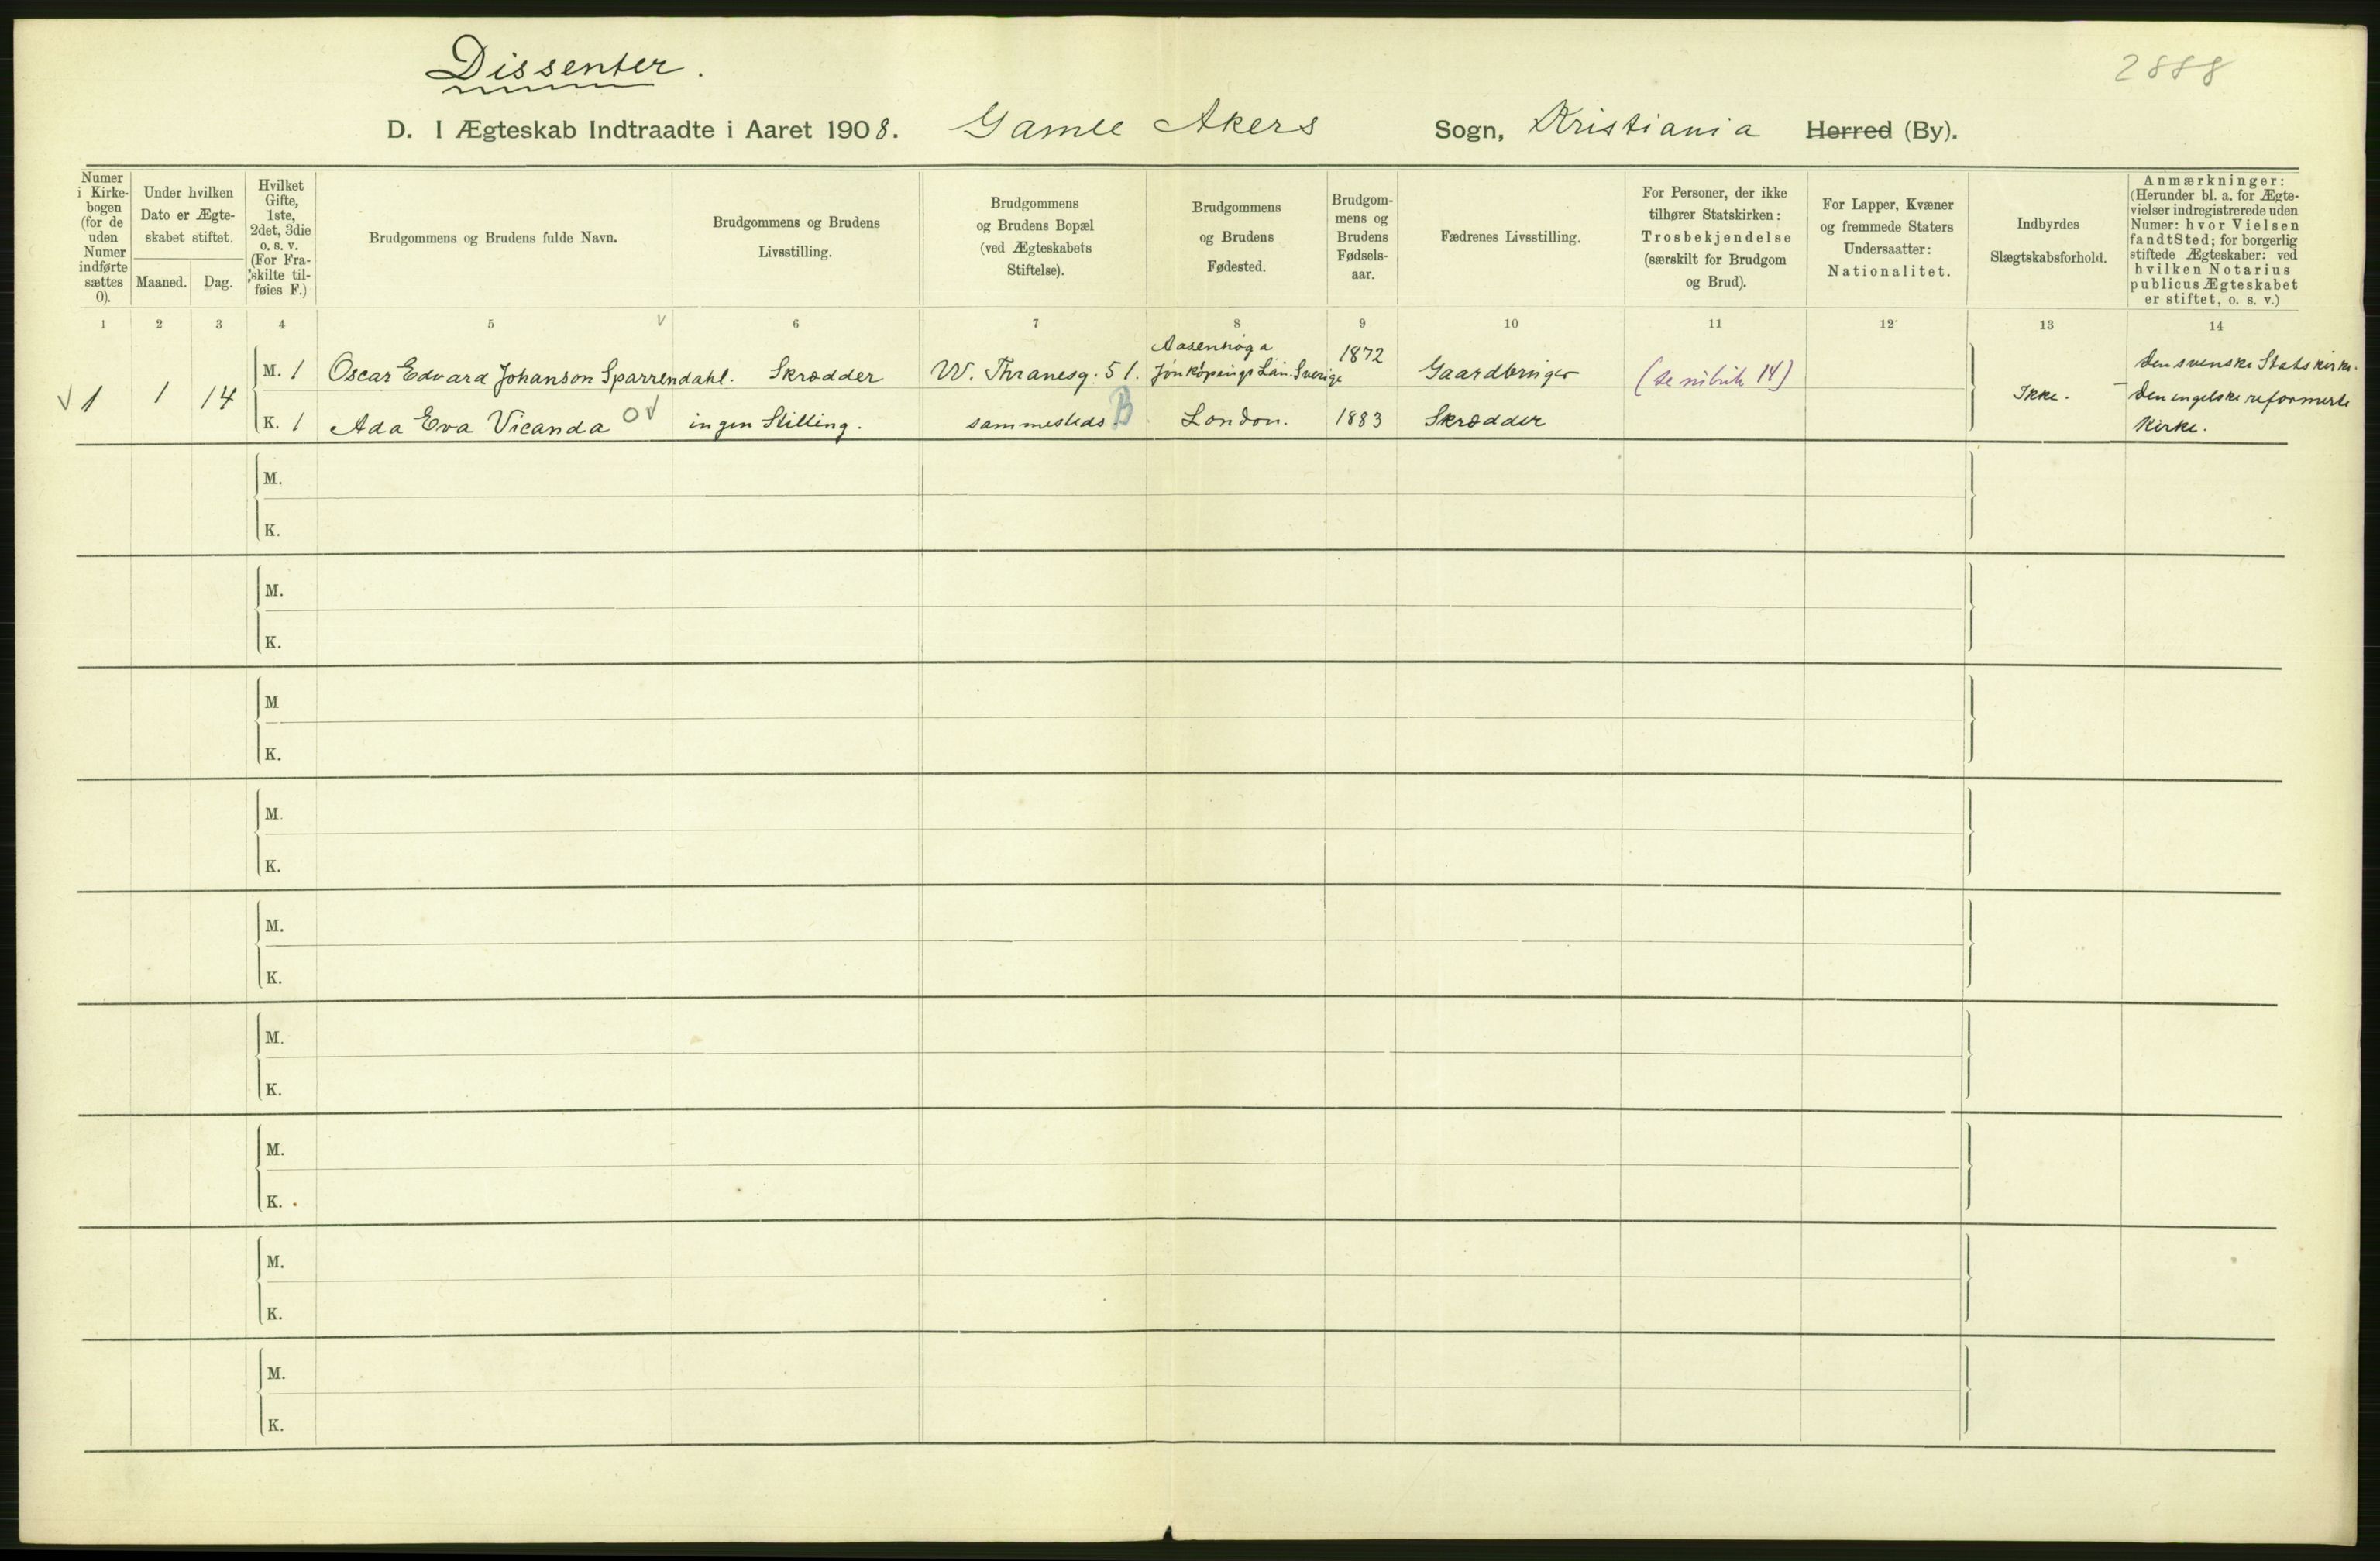 Dissenter.
2888
D. I Ægteskab Indtraadte i Aaret 1908. Gamle Akers Sogn, Kristiania Herred (By).
Numer
i Kirke-
bogen
(for de
uden
Numer
indførte
sættes
0).
Under hvilken
Dato er Ægte-
skabet stiftet.
Maaned. Dag.
Hvilket
Gifte,
1ste,
2det, 3die
o. s. v.
(For Fra-
skilte til-
føies F.)
Brudgommens og Brudens fulde Navn.
Brudgommens og Brudens
Livsstilling.
Brudgommens
og Brudens Bopæl
(ved Ægteskabets
Stiftelse).
Brudgommens
og Brudens
Fødested.
Brudgom-
mens og
Brudens
Fødsels-
aar.
Fædrenes Livsstilling.
For Personer, der ikke
tilhører Statskirken:
Trosbekjendelse
(særskilt for Brudgom
og Brud).
For Lapper, Kvæner
og fremmede Staters
Undersaatter:
Nationalitet.
Indbyrdes
Slægtskabsforhold.
Anmærkninger:
(Herunder bl. a. for Ægte-
vielser indregistrerede uden
Numer: hvor Vielsen
fandt Sted; for borgerlig
stiftede Ægteskaber: ved
hvilken Notarius
publicus Ægteskabet
er stiftet, o. s. v.)
1 2 3 4 5 6 7 8 9 10 11 12 13 14
1 1 14
M. 1 Oscar Edvard Johanson Sparrendahl. Skrædder W. Thranesg. 51.
Aasenhöga
Jönköpings Län. Sverige
1872 Gaardbruger (se rubrik 14)
Ikke.
den svenske Statskirke.
K. 1 Ada Eva Vicanda ingen Stilling. sammesteds. B London. 1883 Skrædder
den engelske reformerte
Kirke.
M.
K.
M.
K.
M
K.
M.
K.
M.
K.
M.
K.
M.
K.
M.
K.
M.
K.